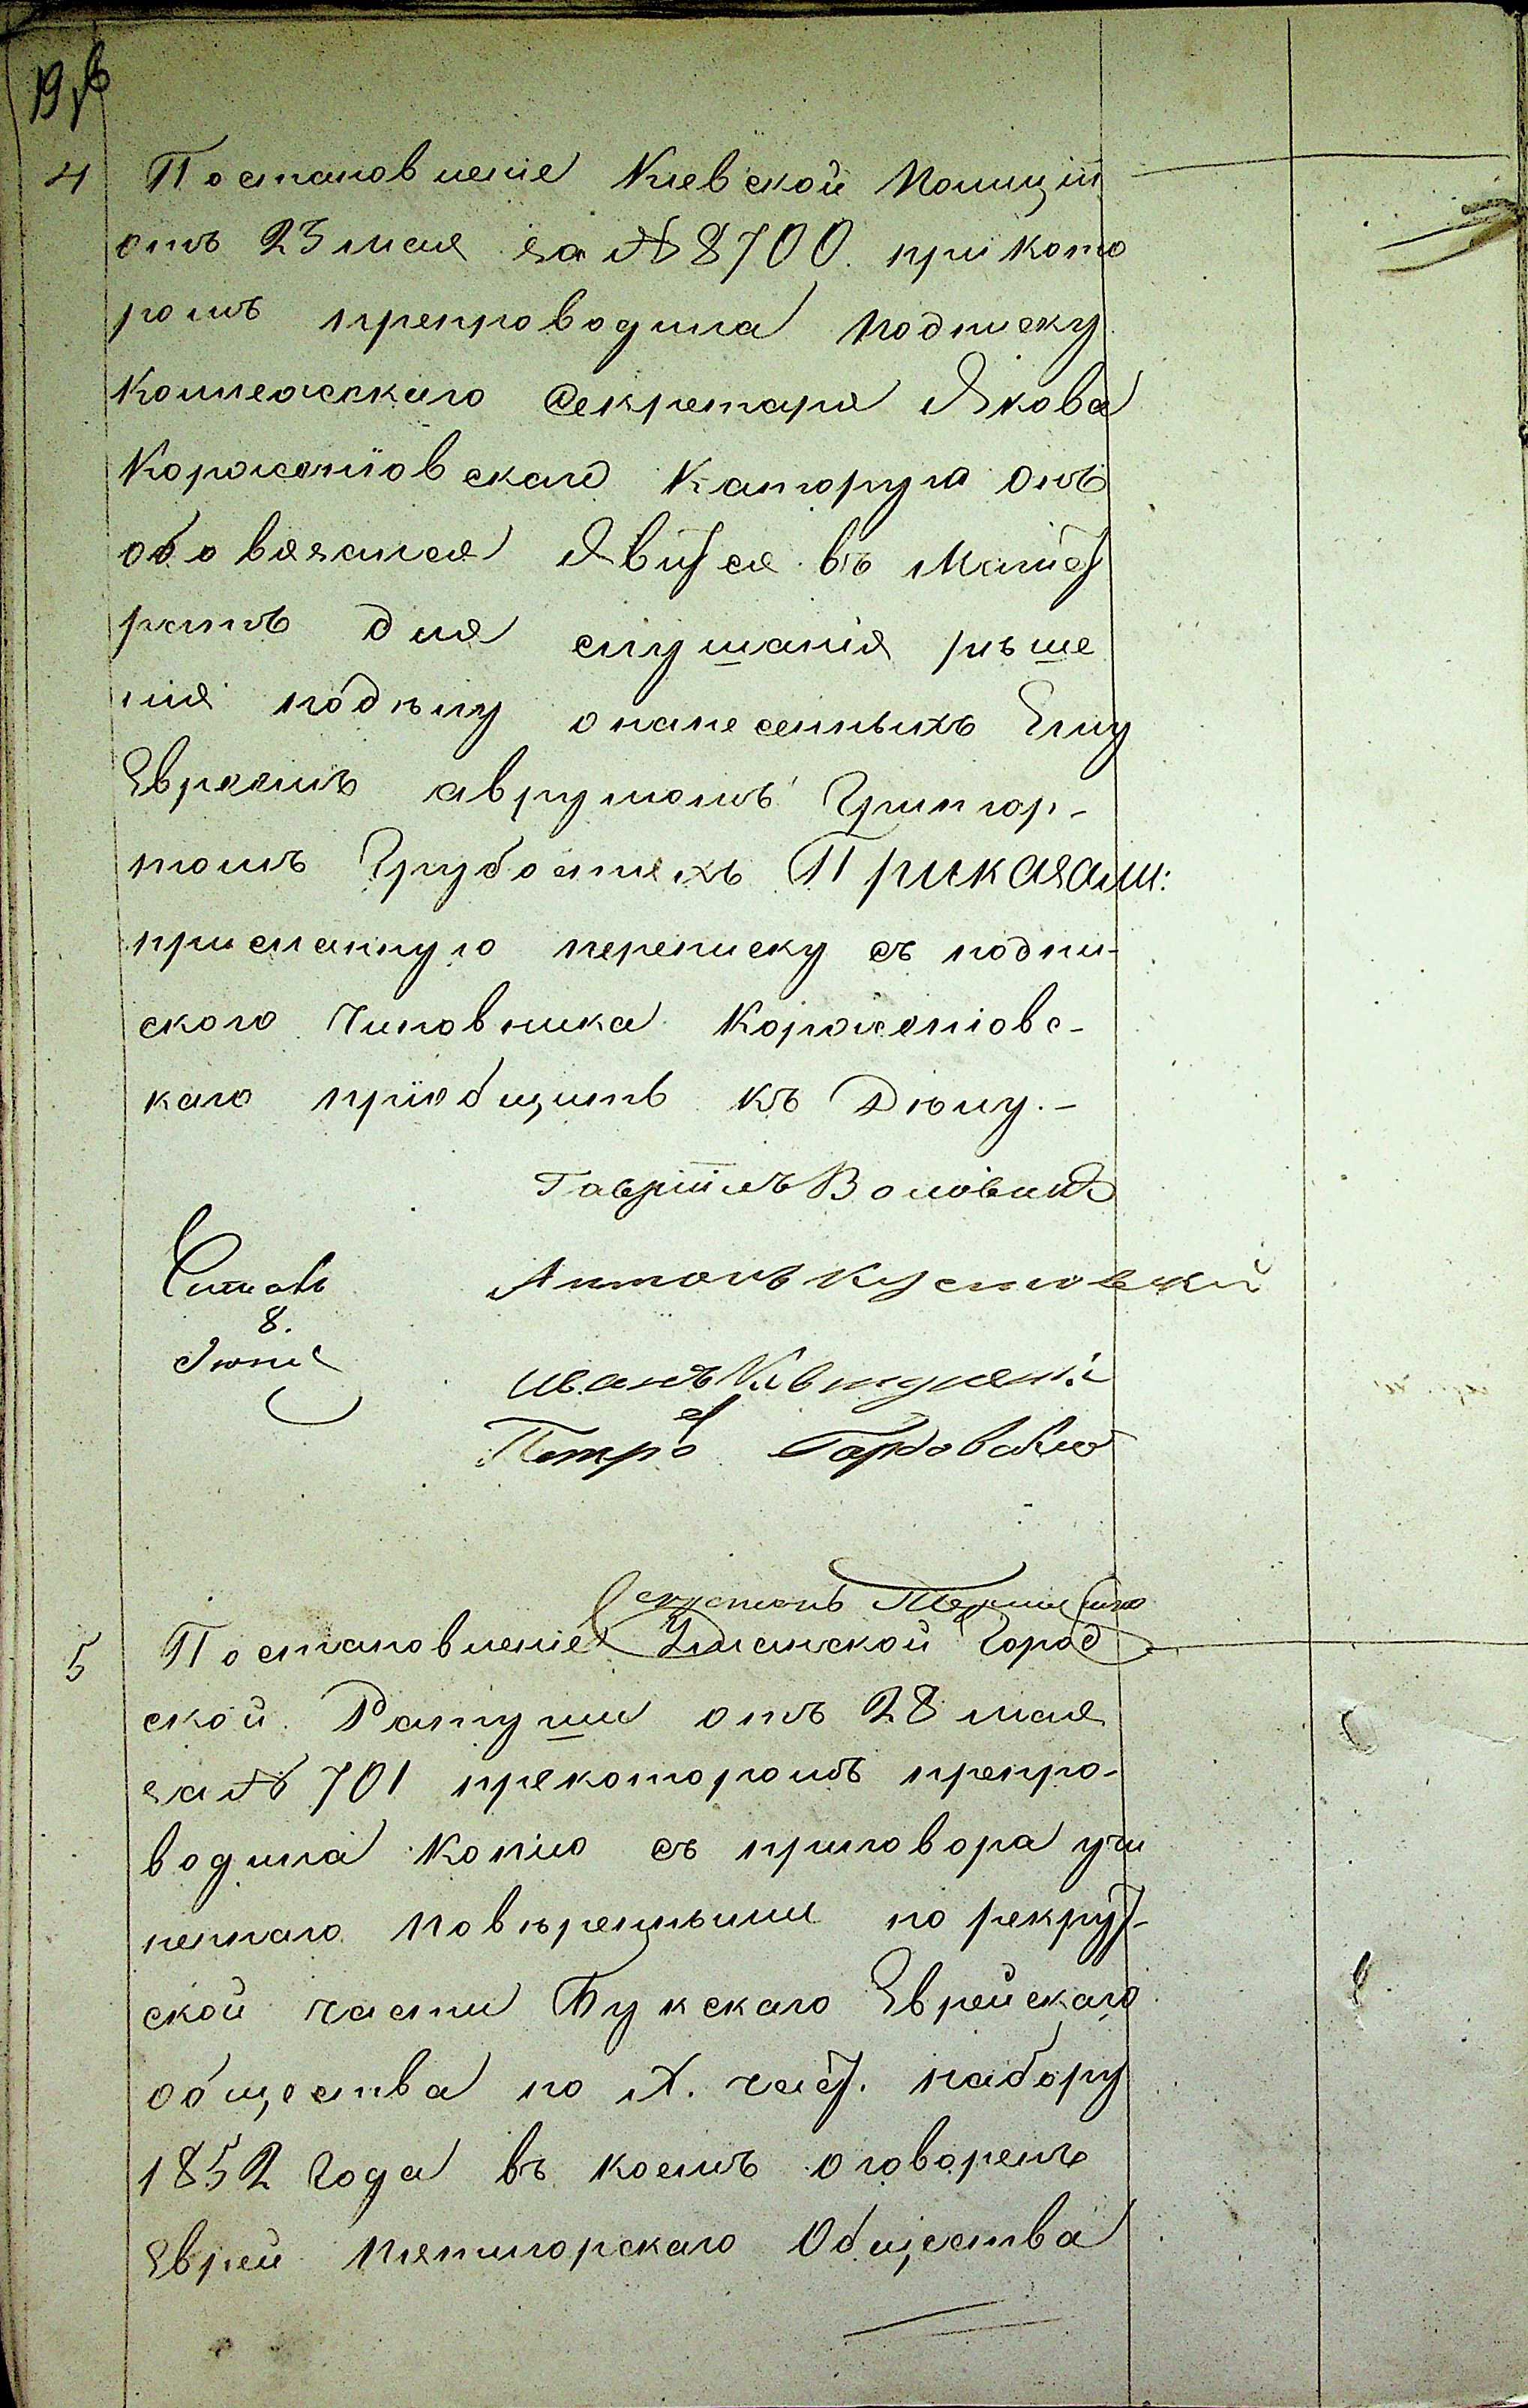 4 Постановленіе Кіевской Полиціи
отъ 23 мая за № 8700. при кото
ромъ препроводила подписку
Коллежскаго Секретаря Якова
Корженіовскаго Которую онъ
обовязался Явится въ Магист
ратъ для слушанія рѣше
нія подѣлу онанесенныхъ Ему
Евреемъ аврумомъ Грингор-
томъ Грубостяхъ Приказали:
присланную переписку съ подпи-
ского чиновника Корженіовс-
каго пріобщить къ Дѣлу.-
Гавріилъ Воловикъ
Читалъ
8.
Іюня
Антонъ Кустовскій
Иванъ
Петръ
5 Постановленіе Уманской Город
ской Ратуши отъ 28 мая
за № 701 прекоторомъ препро-
водила Копію съ приговора учи
неннаго Повѣренными по рекрут-
ской части Букскаго Еврейскаго
общества по Х. част. набору
1852 Года въ коемъ оговоренъ
Еврей Пятигорскаго Общества